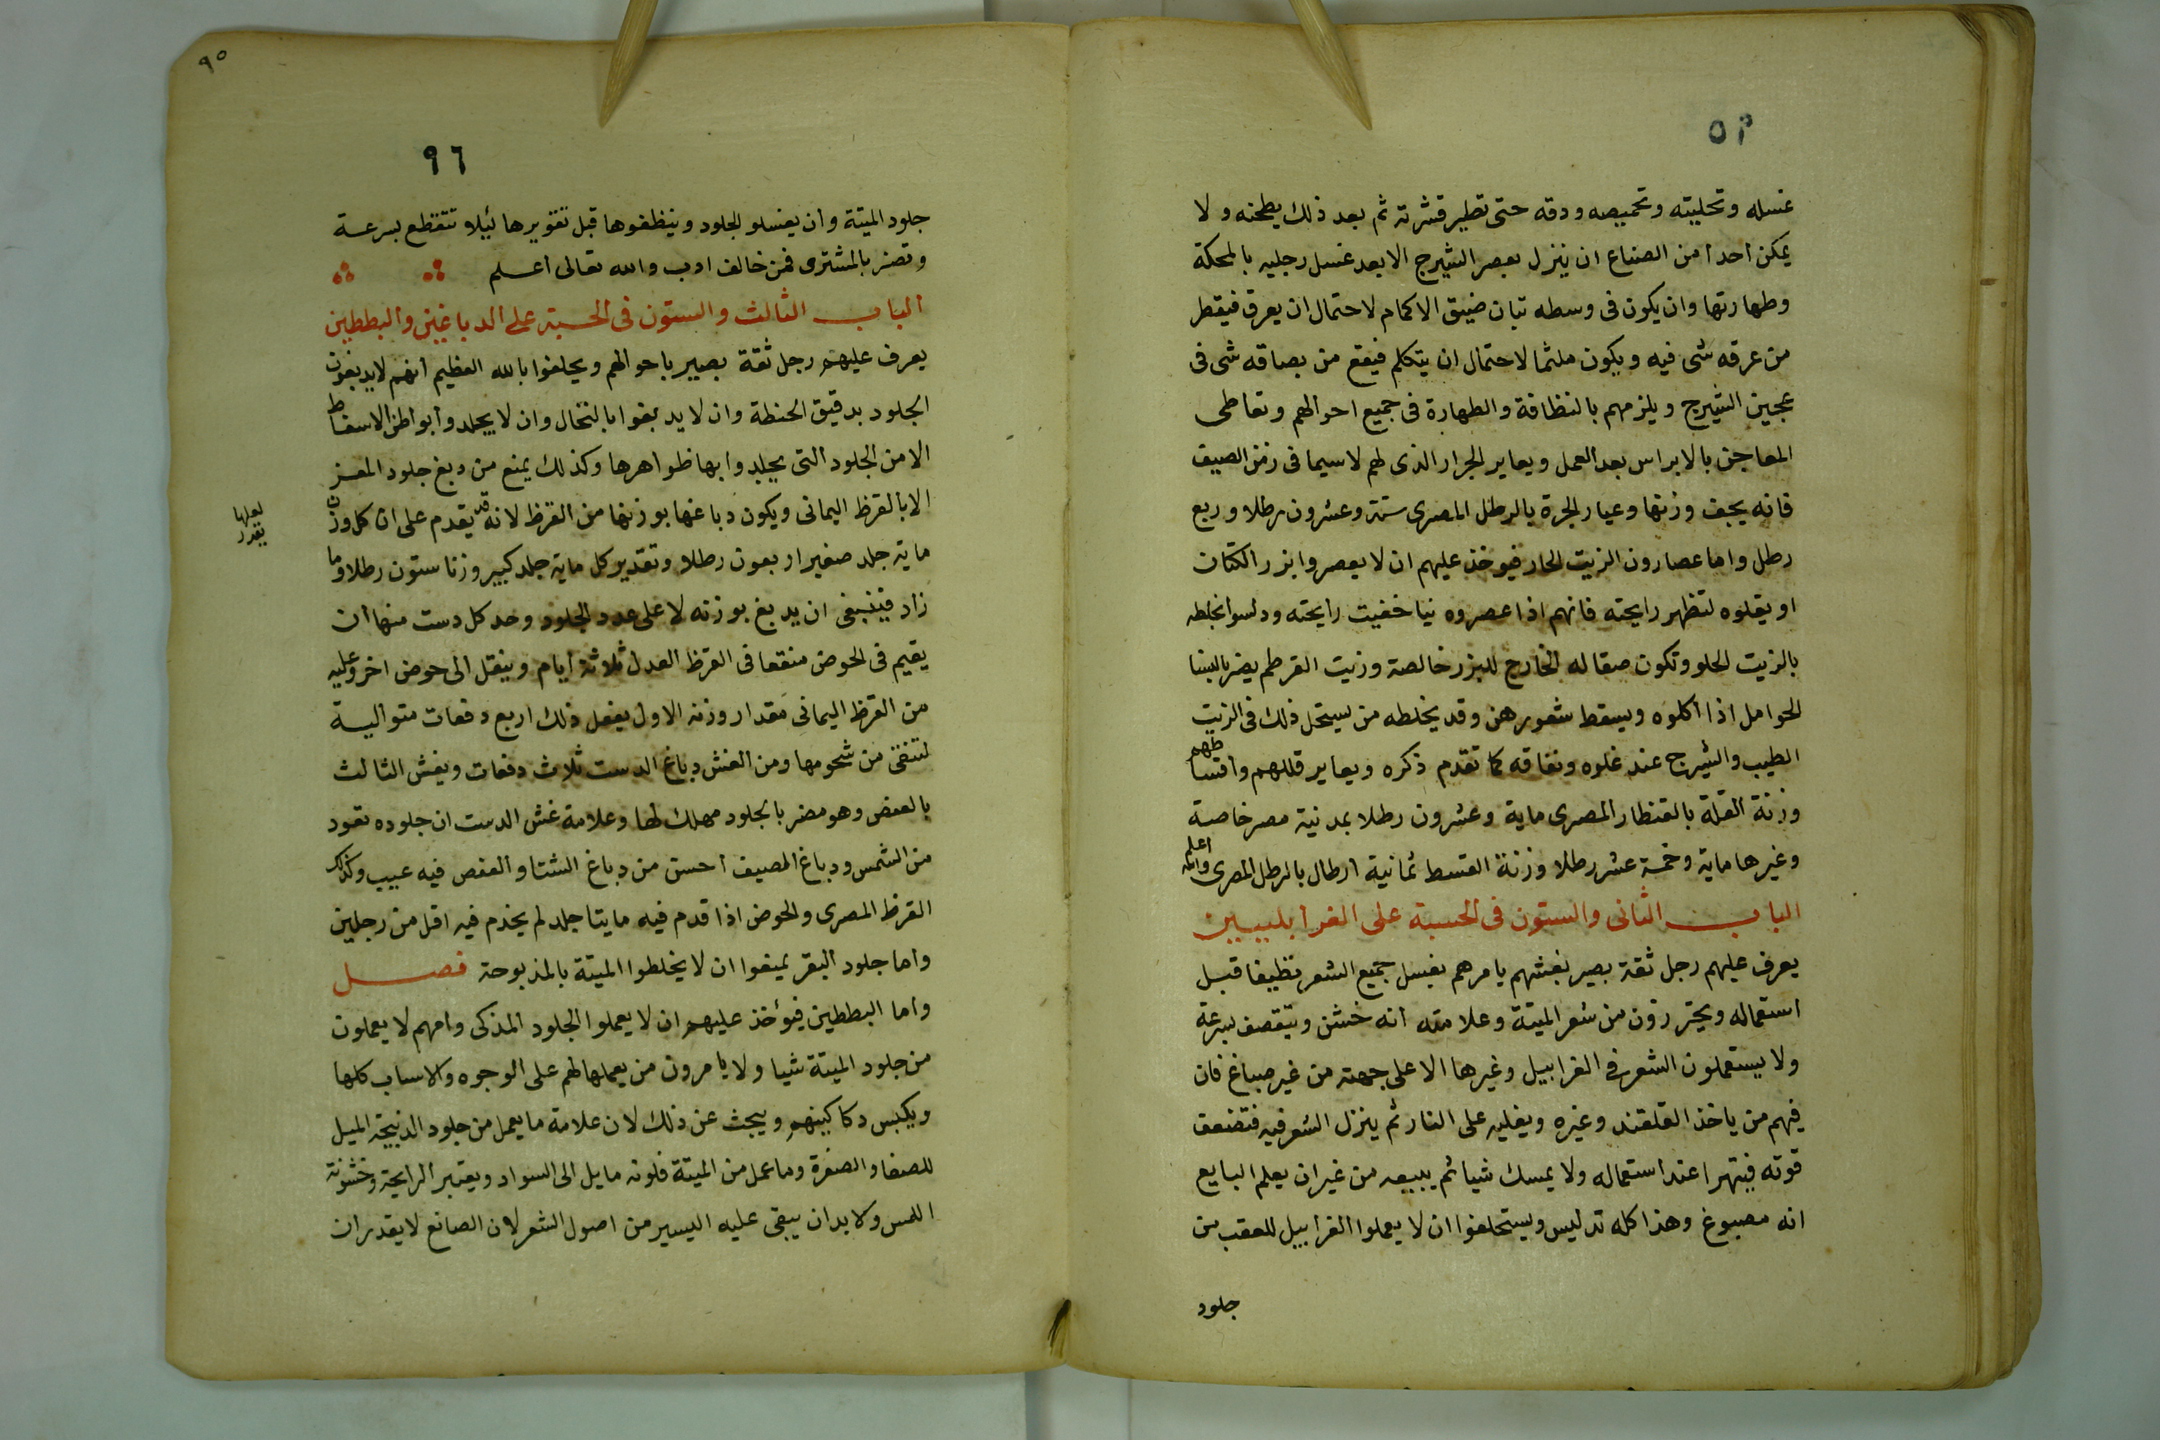 ٥٩
غسله وتحليته وتحميصه ودقه حتى تطير قشرته ثم بعد ذلك يطحنه ولا
يمكن احدا من الصناع ان ينزل بعصر الشيرج الا بعد غسل رجليه بالمحكة
وطهارتها وان يكون فى وسطه تبان ضيق الاكمام لاحتمال ان يعرق فيقطر
من عرقه شى فيه ويكون ملثما لاحتمال ان يتكلم فيقع من بصاقه شى فى
عجين الشيرج ويلزمهم بالنظافة والطهارة فى جميع احوالهم وتعاطى
المعاجن بالابراس بعد العمل ويعاير الجرار الذى لهم لاسيما فى زمن الصيف
فانه يجف وزنها وعيار الجرة بالرطل المصرى ستة وعشرون رطلا وربع
رطل واما عصارون الزيت الحار فيوخذ عليهم ان لا يعصروا بزر الكتان
او يقلوه لتظهر رايحته فانهم اذا عصروه نيا خفيت رايحته ودلسوا بخلطه
بالزيت الحلو وتكون صقاله الخارج للبزر خالصة وزيت القرطم يضر بالنسا
الحوامل اذا اكلوه ويسقط شعورهن وقد يخلطه من يستحل ذلك فى الزيت
الطيب والشيرج عند غلوه ونفاقه كما تقدم ذكره ويعاير قللهم واقساطهم
وزنة القلة بالقنطار المصرى ماية وعشرون رطلا بمدنية مصر خاصة
وغيرها ماية وخمسة عشر رطلا وزنة القسط ثمانية ارطال بالرطل المصرى والله اعلم
الباب الثانى والستون فى الحسبة على الغرابليين
يعرف عليهم رجل ثقة بصير بغشهم يامرهم بغسل جميع الشعر نظيفا قبل
استعماله ويحترزون من شعر الميتة وعلامته انه خشن ويتقصف بسرعة
ولا يستعملون الشعر فى الغرابيل وغيرها الا على جهته من غير صباغ فان
فيهم من ياخذ القلقند وغيره ويغليه على النار ثم ينزل الشعر فيه فتضعف
قوته فيتهرا عند استعماله ولا يمسك شيا ثم يبيعه من غير ان يعلم البايع
انه مصبوغ وهذا كله تدليس ويستحلفوا ان لا يعملوا الغرابيل للعقب من
جلود
٩٠
٩٦
جلود الميتة وان يغسلو الجلود وينظفوها قبل تقويرها ليئلا تتقطع بسرعة
وتضر بالمشترى فمن خالف ادب والله تعالى اعلم
الباب الثالث والستون فى الحسبة على الدباغين والبططيين
يعرف عليهم رجل ثقة بصير باحوالهم ويحلفوا بالله العظيم انهم لا يدبغون
الجلود بدقيق الحنظة وان لا يدبغوا بالنخال وان لا يجلدوا بواطن الاسفاط
الا من الجلود التى يجلدوا بها ظواهرها وكذلك يمنع من دبغ جلود المعز
الا بالقرظ اليمانى ويكون دباغها بوزنها من القرظ لانه قد يقدم على ان كل وزن
لعلها يقدر
ماية جلد صغير اربعون رطلا وتقدير كل ماية جلد كبير وزنا ستون رطلا وما
زاد فينبغى ان يدبغ بوزنه لا على عدد الجلود وحد كل دست منها ان
يقيم فى الحوض منقعا فى القرظ العدل ثلاثة ايام وينقل الى حوض اخر وعليه
من القرظ اليمانى مقدار وزنه الاول يفعل ذلك اربع دفعات متوالية
لتنقى من شحومها ومن الغش دباغ الدست ثلاث دفعات ويغش الثالث
بالعفص وهو مضر بالجلود مهلك لها وعلامة غش الدست ان جلوده تعود
من الشمس ودباغ المصيف احسن من دباغ الشتا والعفص فيه عيب وكذلك
القرظ المصرى والحوض اذا قدم فيه مايتا جلد لم يخدم فيه اقل من رجلين
واما جلود البقر يمنعوا ان لا يخلطوا الميتة بالمذبوحة فصل
واما البططين فيؤخذ عليهم ان لا يعملوا الجلود المذكى وانهم لا يعملون
من جلود الميتة شيا ولا يامرون من يعملها لهم على الوجوه والاسباب كلها
ويكبس دكاكينهم ويبحث عن ذلك لان علامة ما يعمل من جلود الذبيحة الميل
للصفا والصفرة وما عمل من الميتة فلونه مايل الى السواد ويعتبر الرايحة وخشونة
اللمس ولا بد ان يبقى عليه اليسير من اصول الشعر لان الصانع لا يقدر ان